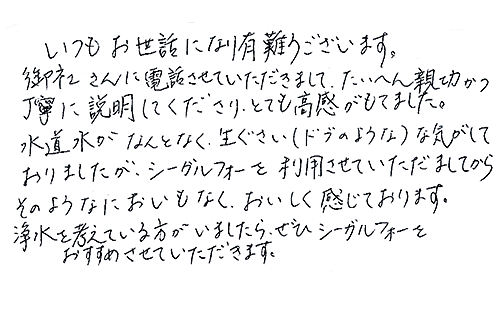 いつもお世話になり有難うございます。
御社さんに電話させていただきまして、たいへん親切かつ
丁寧に説明してくださり、とても高感がもてました。
水道水がなんとなく、生ぐさい(ドブのような)な気がして
おりましたが、シーガルフォーを利用させていただましてから
そのようなにおいもなく、おいしく感じております。
浄水を考えている方がいましたら、ぜひシーガルフォーを
おすすめさせていただきます。